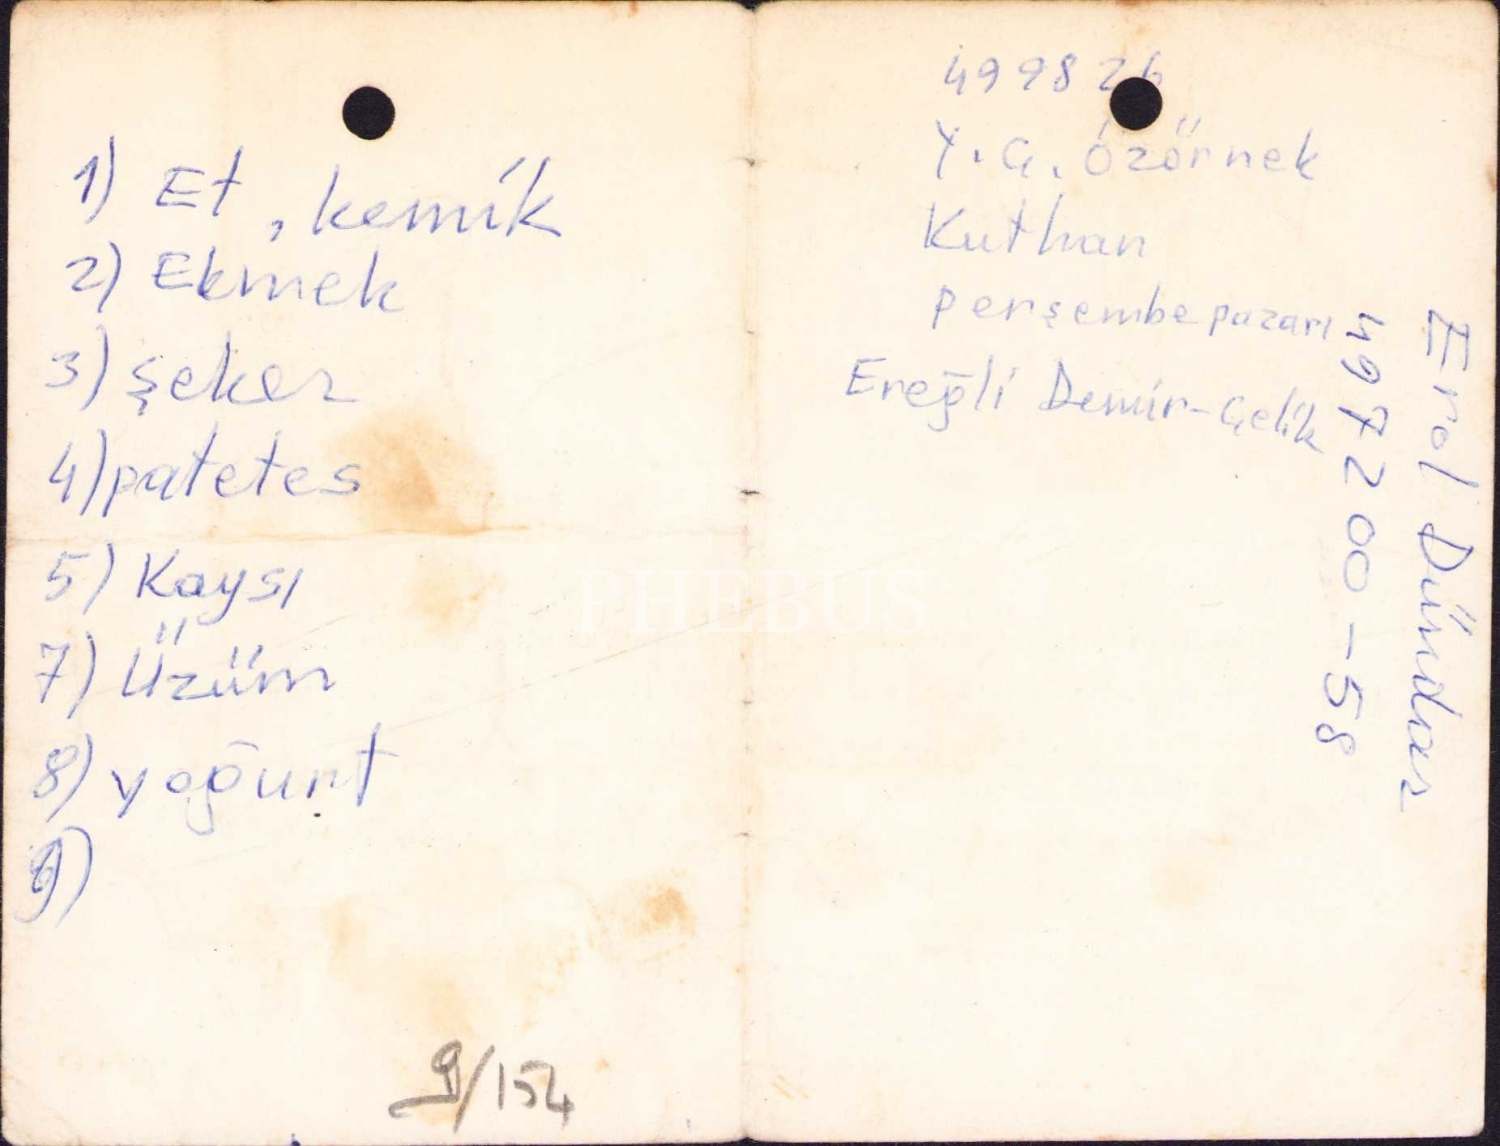 1) Et, kemik
2) Ekmek
3) şeker
4) patetes
5) Kaysı
7) Üzüm
8) yoğurt
9)
9/154
499826
Y. G. Özörnek
Kuthan
perşembe pazarı
Ereğli Demir-Çelik
497200-58
Erol Dündar
PHEBUS